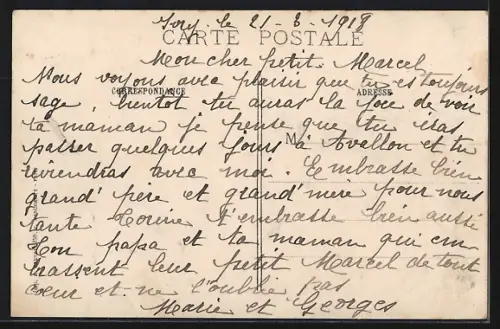 Ivry. le 21-8-1918
CARTE POSTALE
Mon cher petit. Marcel
Nous voyons avec plaisir que tu es toujours
CORRESPONDANCE
ADRESSE
sage, bientot tu auras la joie de voir
ta maman je pense que tu iras
M
passer quelques jours à Avallon et tu
reviendras avec moi. Embrasse bien
grand' père et grand' mère pour nous
tante t'embrasse bien aussi
Ton papa et ta maman qui em
brassent leur petit Marcel de tout
coeur et ne l'oublie pas
Marie et Georges